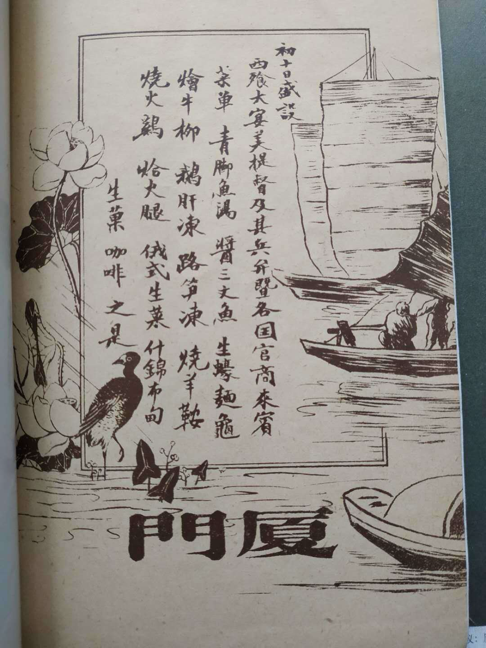 初十日盛設
西餐大宴美提督及其兵弁暨各国官商來賓
菜单 青脚魚湯 醬三文魚 生蠔麵龜
燴牛柳 鵝肝凍 路笋凍 燒羊鞍
燒火鷄 烚火腿 俄式生菜 什錦布甸
生菓 咖啡 之是
厦門